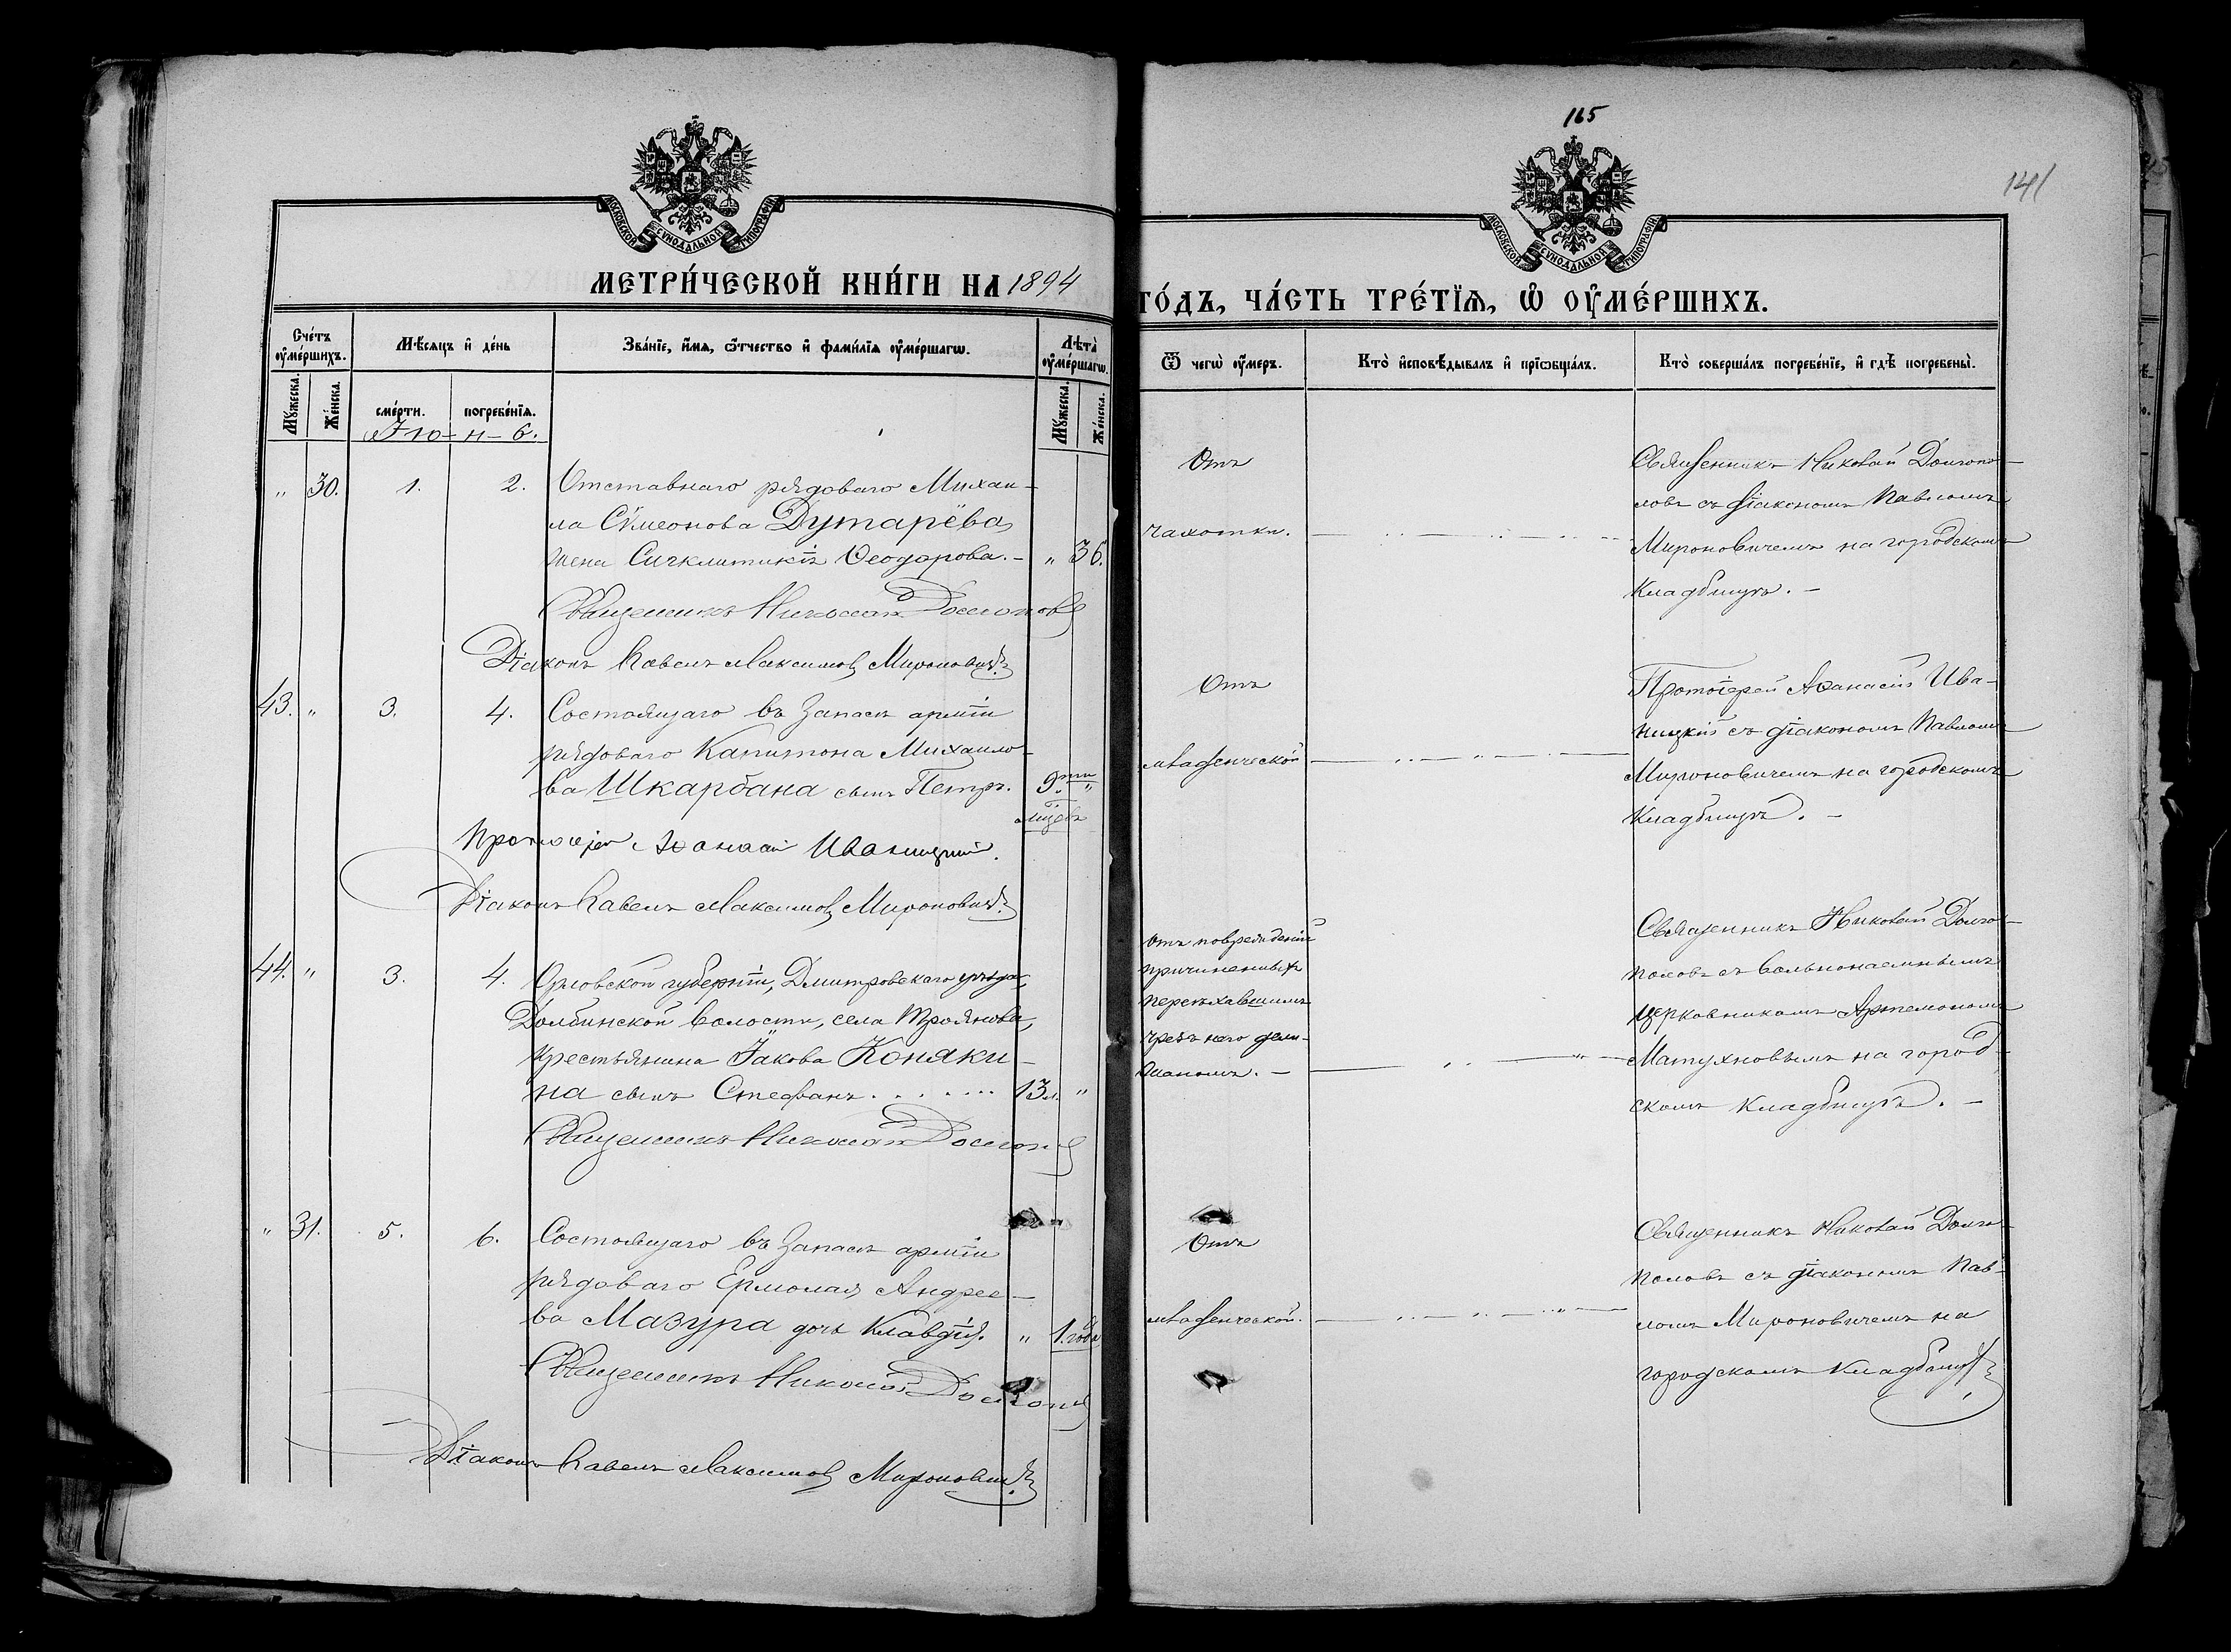 165
141
МОСКОВСКОЙ СѴНОДАЛЬНОЙ ТИПОГРАФІИ
МОСКОВСКОЙ СѴНОДАЛЬНОЙ ТИПОГРАФІИ
МЕТРИ́ЧЕСКОЙ КНИ́ГИ НА 1894
ГО́ДЪ, ЧА́СТЬ ТРЕ́ТЇѦ, Ѡ҆ ОУ҆МЕ́РШИХЪ.
Сче́тъ оу҆ме́ршихъ.
Мѣ́сяцъ и҆ де́нь
Зва́нїе, и҆́мѧ, ѻ҆́тчество и҆ фами́лїѧ оу҆ме́ршагѡ.
Лѣта̀ оу҆ме́ршагѡ.
Мꙋ́жеска.
Же́нска.
сме́рти.
погребе́нїѧ.
Мꙋ́жеска.
Же́нска.
Ѿ чегѡ̀ оу҆́меръ.
Кто̀ и҆сповѣ́дывалъ и҆ прїѡбща́лъ.
Кто̀ соверша́лъ погребе́нїе, и҆ гдѣ̀ погребены̀.
Iю- н- ь.
" 30. 1. 2. Отставнаго рядоваго Михаи-
ла Сѵмеонова Дутарёва
жена Сигклитикія Ѳеодорова.- " 36.
Священникъ Николай Долгополовъ
Діаконъ Павелъ Максимовъ Мироновичъ.
Отъ
чахотки.
Священникъ Николай Долгопо-
ловъ съ діакономъ Павломъ
Мироновичемъ на городскомъ
кладбищѣ.-
43. " 3. 4. Состоящаго въ запасѣ арміи
рядоваго Капитона Михаило-
ва Шкарбана сынъ Петръ. 9.ти "
м-цевъ
Протоіерей Аѳанасій Иваницкій.
Діаконъ Павелъ Максимовъ Мироновичъ.
Отъ
младенческой
Протоіерей Аѳанасій Ива-
ницкій съ діакономъ Павломъ
Мироновичемъ на городскомъ
кладбищѣ.-
44. " 3. 4. Орловской губерніи, Дмитровскаго уѣзда,
Долбинской волости, села Троянова,
крестьянина Іакова Коняки-
на сынъ Стефанъ....... 13 л. "
Священникъ Николай Долгополовъ
Отъ поврежденій
причиненныхъ
переѣхавшимъ
чрезъ него дели-
жаномъ.-
Священникъ Николай Долго-
половъ съ вольнонаемнымъ
церковникомъ Артемономъ
Матухновымъ на город-
скомъ кладбищѣ.-
" 31. 5. 6. Состоящаго въ запасѣ арміи
рядоваго Ермолая Андрее-
ва Мазура дочь Клавдія. " 1. года
Священникъ Николай Долгополовъ
Діаконъ Павелъ Максимовъ Мироновичъ.
Отъ
младенческой.
Священникъ Николай Долго-
половъ съ діакономъ Пав-
ломъ Мироновичемъ на
городскомъ кладбищѣ